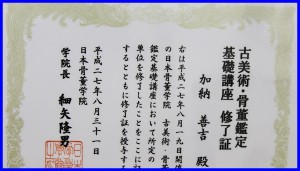 古美術・骨董鑑定
基礎講座 修了証
加納 善吉 殿
右は平成二七年八月一九日開
の日本骨董学院 古美術・骨董
鑑定基礎講座において所定の
単位を修了したことをここに
するとともに修了証を授与する
平成二七年八月三十一日
日本骨董学院
学院長 細矢隆男